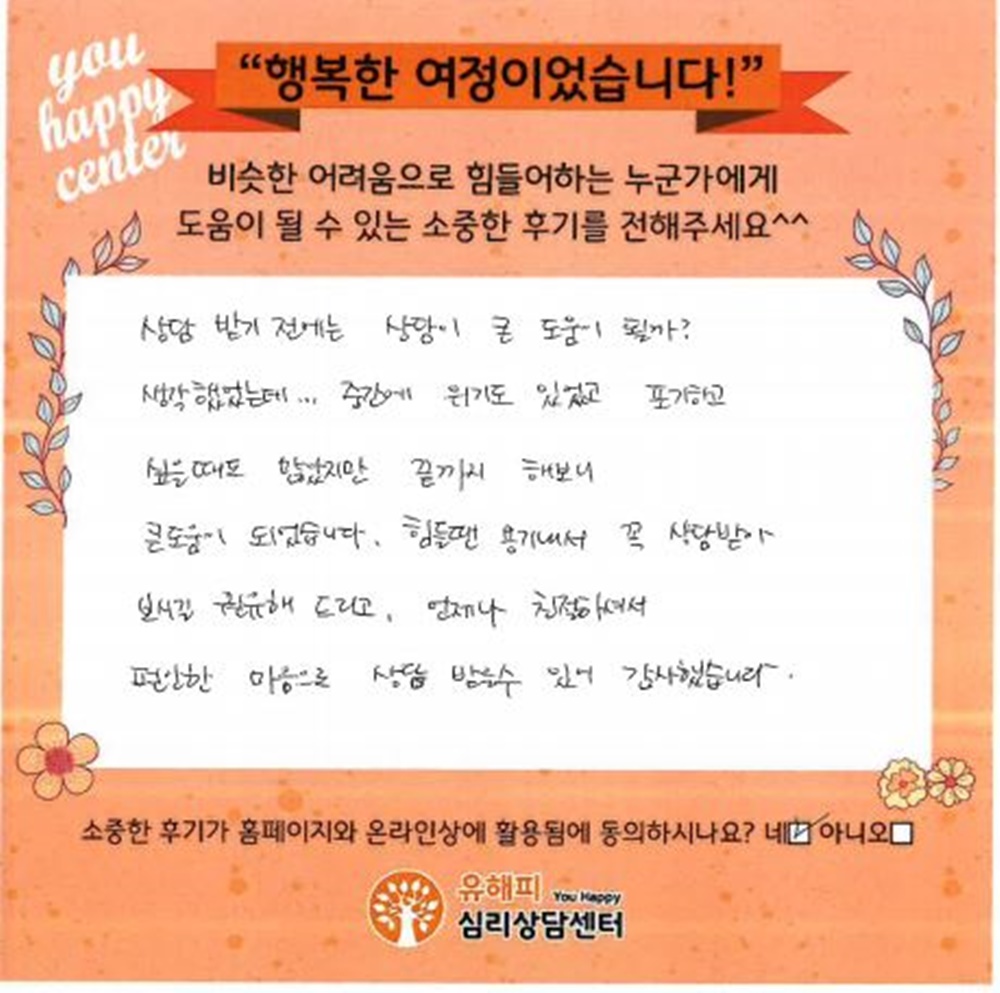 you
happy
center
“행복한 여정이었습니다!”
비슷한 어려움으로 힘들어하는 누군가에게
도움이 될 수 있는 소중한 후기를 전해주세요^^
상담 받기 전에는 상담이 큰 도움이 될까?
생각했었는데... 중간에 위기도 있었고 포기하고
싶을때도 많았지만 끝까지 해보니
큰도움이 되었습니다. 힘들땐 용기내서 꼭 상담받아
보시길 권유해 드리고, 언제나 친절하셔서
편안한 마음으로 상담 받을수 있어 감사했습니다.
소중한 후기가 홈페이지와 온라인상에 활용됨에 동의하시나요? 네☑ 아니오☐
유해피 You Happy
심리상담센터